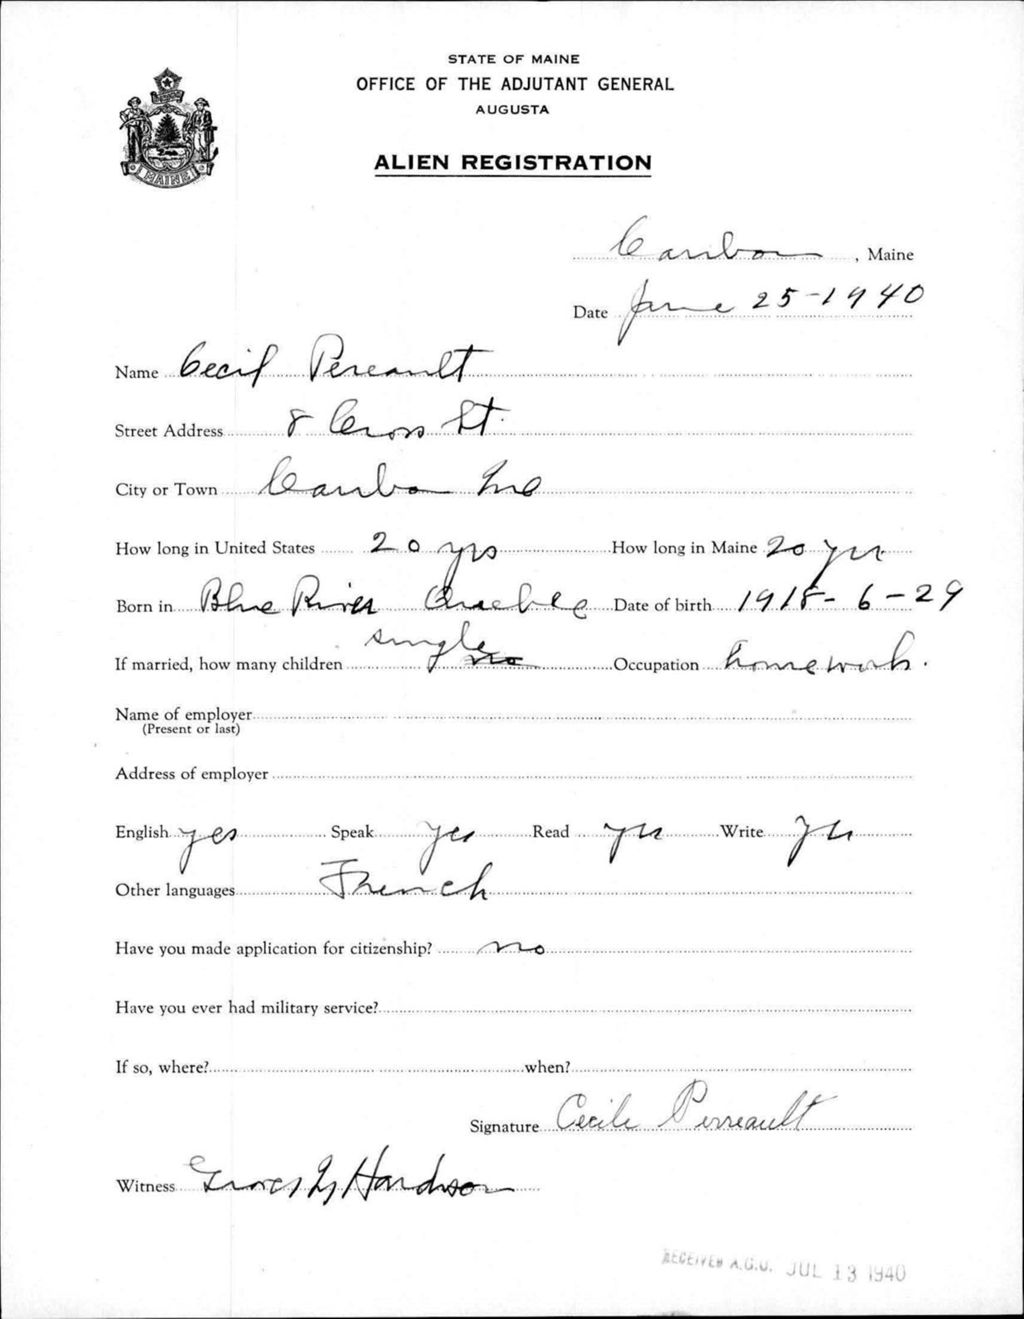 STATE OF MAINE
OFFICE OF THE ADJUTANT GENERAL
AUGUSTA
ALIEN REGISTRATION
MAINE
Caribou, Maine
Date June 25-1940
Name Cecil Pereault
Street Address 8 Cross St.
City or Town Caribou Me
How long in United States 20 yrs How long in Maine 20 yrs
Born in Blue River Quebec Date of birth 1918-6-29
single
If married, how many children no Occupation homework.
Name of employer
(Present or last)
Address of employer
English yes Speak yes Read yes Write yes
Other languages French
Have you made application for citizenship? no
Have you ever had military service?
If so, where? when?
Signature Cecile Perreault
Witness Hardison
RECEIVED A.G.O. JUL 13 1940